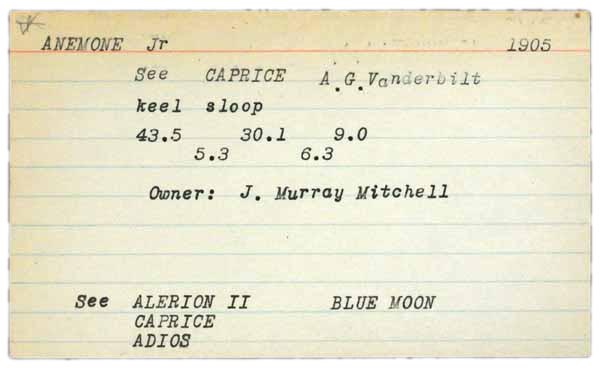 ANEMONE Jr 1905
See CAPRICE A.G.Vanderbilt
keel sloop
43.5 30.1 9.0
5.3 6.3
Owner: J. Murray Mitchell
See ALERION II BLUE MOON
CAPRICE
ADIOS